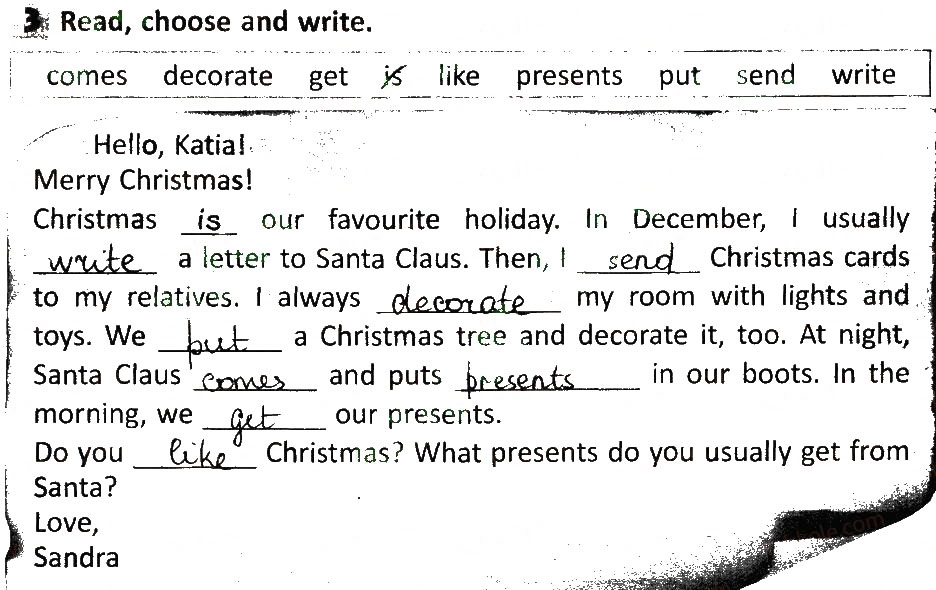 3 Read, choose and write.
comes decorate get is like presents put send write
Hello, Katia!
Merry Christmas!
Christmas is our favourite holiday. In December, I usually
write a letter to Santa Claus. Then, I send Christmas cards
to my relatives. I always decorate my room with lights and
toys. We put a Christmas tree and decorate it, too. At night,
Santa Claus comes and puts presents in our boots. In the
morning, we get our presents.
Do you like Christmas? What presents do you usually get from
Santa?
Love,
Sandra